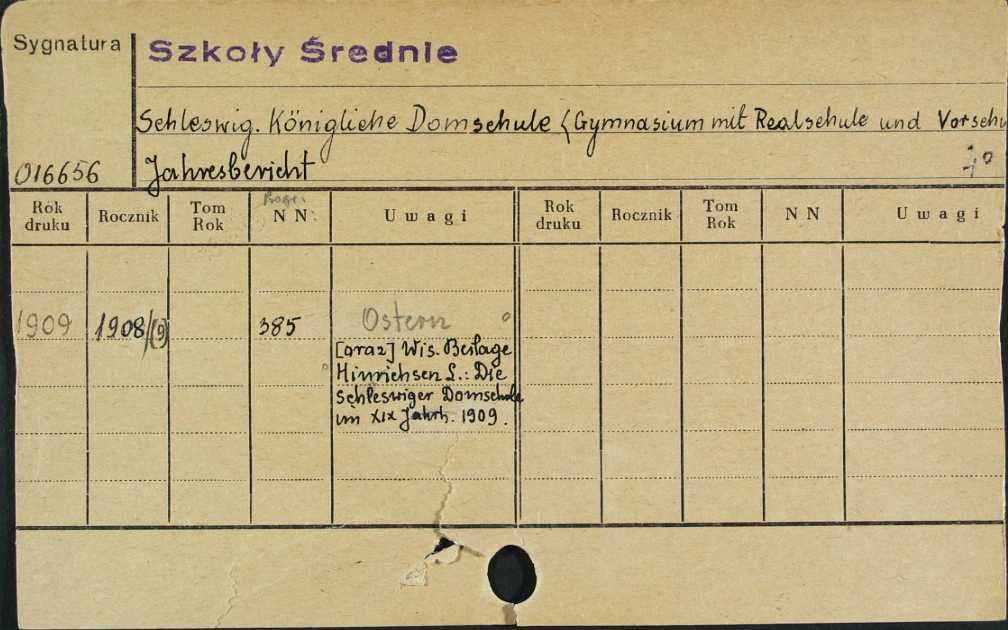 Sygnatura
Szkoły Średnie
Schleswig. Königliche Domschule (Gymnasium mit Realschule und Vorschu
016656
Jahresbericht
Rok druku Rocznik Tom Rok NN Uwagi Rok druku Rocznik Tom Rok NN Uwagi
1909 1908/(9) 385 Ostern
[oraz] Wis. Beilage
Hinrichsen L.: Die
Schleswiger Domschule
im XIX Jahrh. 1909.